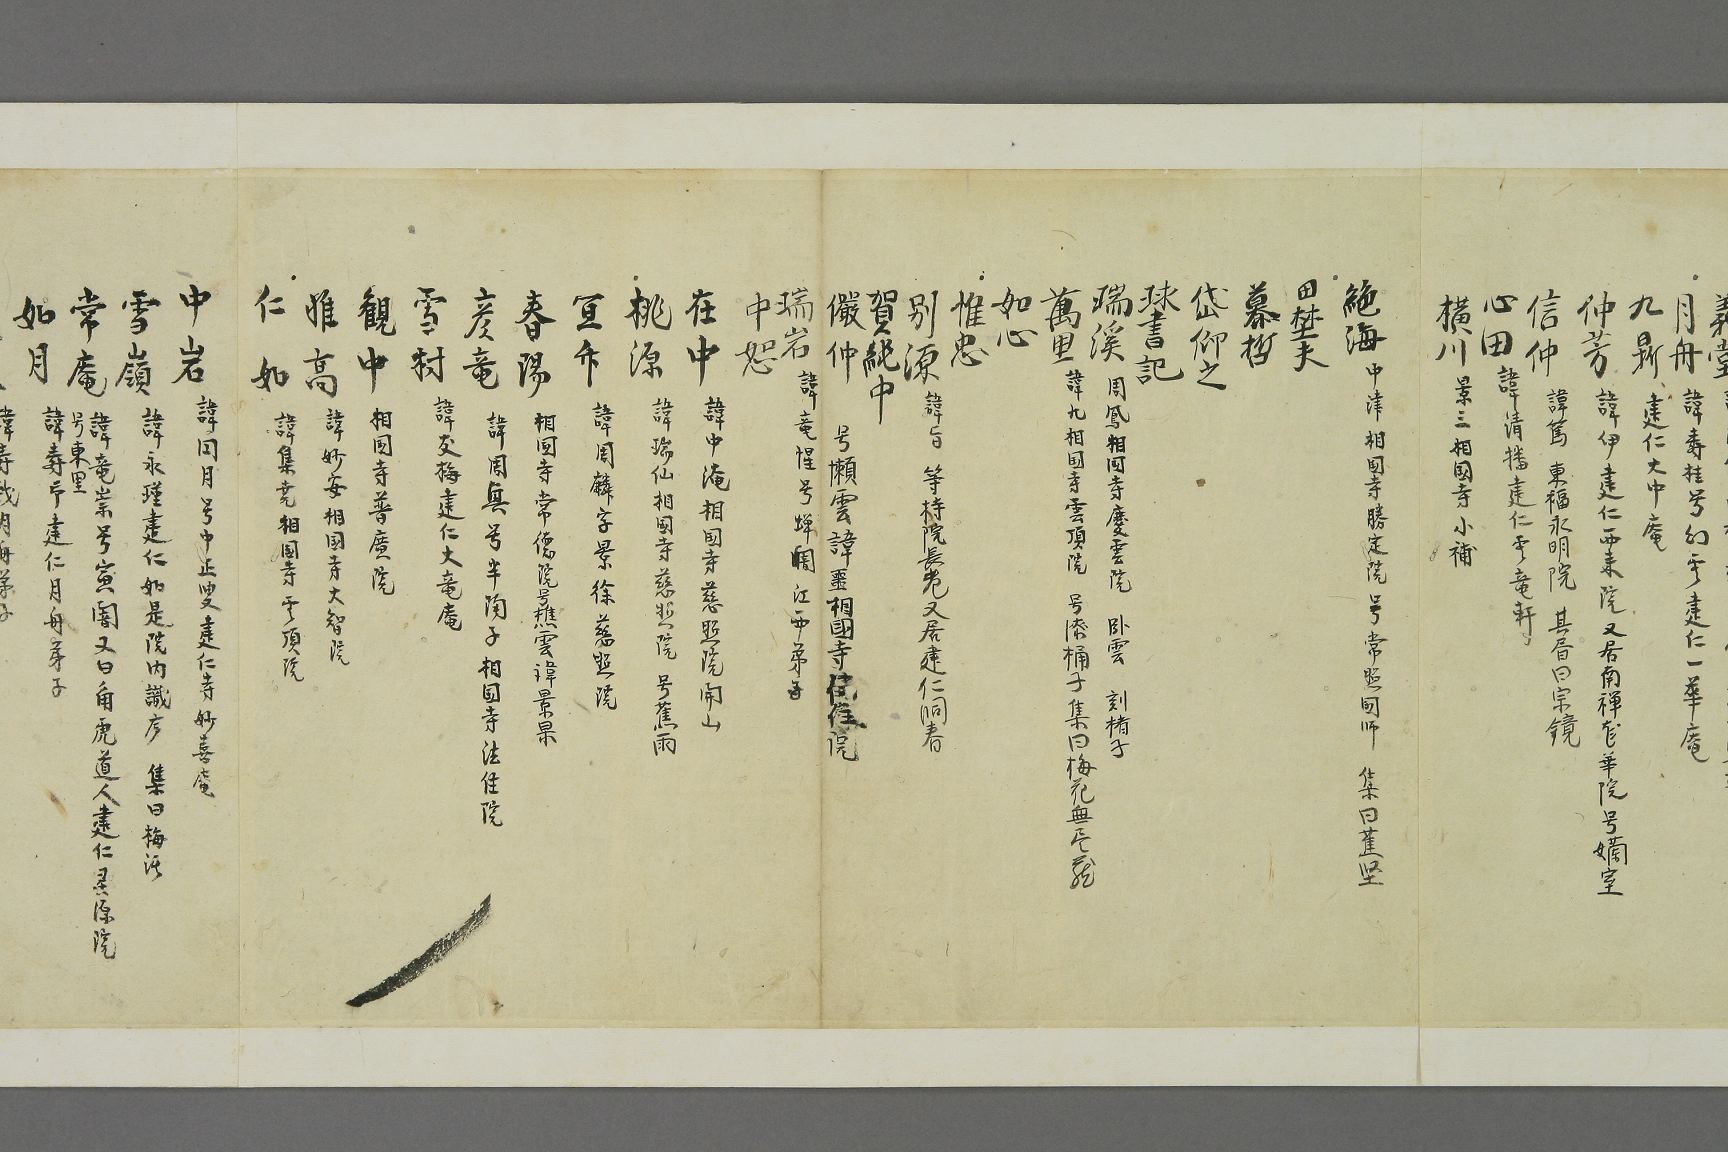 義堂
月舟 諱寿桂号幻雲建仁一華庵
九鼎 建仁大中庵
仲芳 諱伊建仁西来院又居南禅花華院号嬾室
信仲 諱篤 東福永明院 其居曰宗鏡
心田 諱清播建仁雲竜軒
横川 景三相国寺小補
絶海 中津相国寺勝定院号常照国師 集曰蕉堅
田埜夫
慕哲
岱仰之
球書記
瑞溪 周鳳相国寺慶雲院 臥雲 刻楮子
萬里 諱九相国寺雲頂院 号漆桶子集曰梅花無尽蔵
如心
惟忠
別源 諱旨 等持院長老又居建仁洞春
賀統中
儼仲 号懶雲諱噩相国寺 院
瑞岩 諱竜惺号蝉闇江西弟子
中恕
在中 諱中淹相国寺慈照院開山
桃源 諱瑞仙相国寺慈照院 号蕉雨
宜竹 諱周麟字景徐慈照院
春陽 相国寺常徳院号樵雲諱景杲
彦竜 諱周興号半陶子相国寺法住院
雪村 諱友梅建仁大竜庵
観中 相国寺普廣院
雅高 諱妙安相国寺大智院
仁如 諱集尭相国寺雲頂院
中岩 諱円月号中正叟建仁寺妙喜庵
雪嶺 諱永瑾建仁如是院内識庐 集曰梅渓
常庵 諱竜崇号寅闇又曰角虎道人建仁霊源院
号東里
如月 諱寿印建仁月舟弟子
諱寿戩月舟弟子